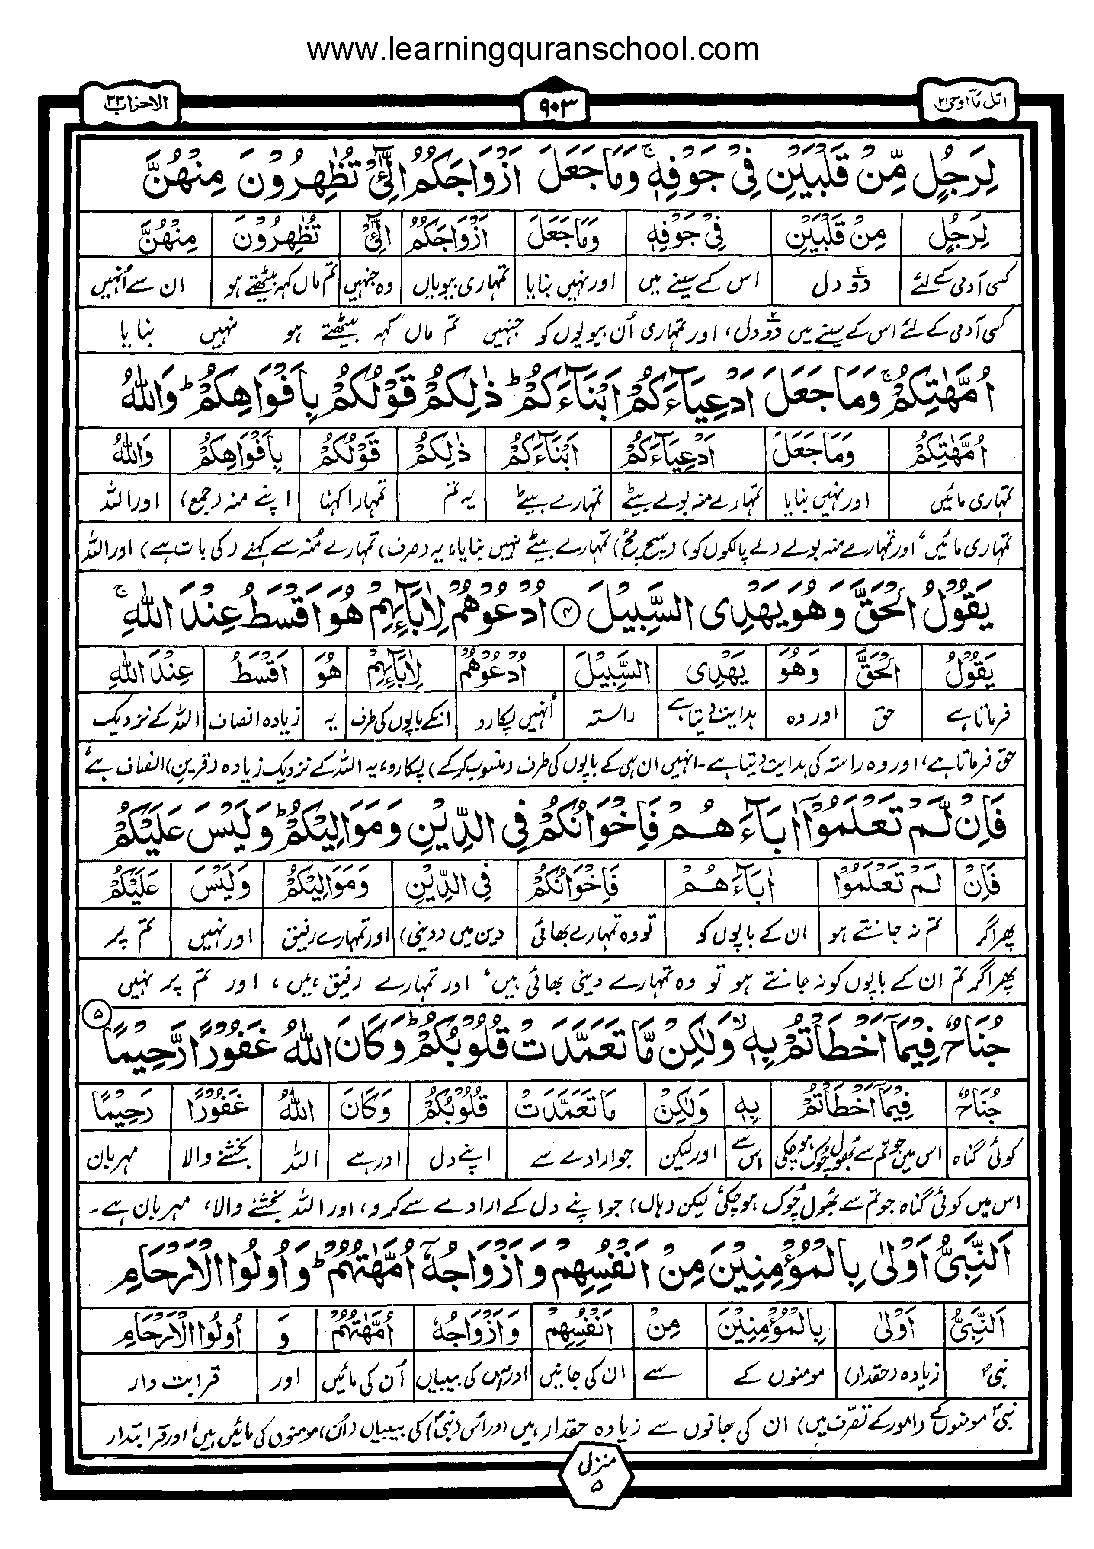 www.learningquranschool.com
اتل مآ اوحی ۲۱
۹۰۳
الاحزاب ۳۳
لِرَجُلٍ مِّنْ قَلْبَيْنِ فِيْ جَوْفِهٖ ۚ وَمَا جَعَلَ اَزْوَاجَكُمُ الّٰٓـِٔيْ تُظٰهِرُوْنَ مِنْهُنَّ
لِرَجُلٍ مِنْ قَلْبَيْنِ فِيْ جَوْفِهٖ وَمَا جَعَلَ اَزْوَاجَكُمُ الّٰٓـِٔيْ تُظٰهِرُوْنَ مِنْهُنَّ
کسی آدمی کے لئے دو دل اس کے سینے میں اور نہیں بنایا تمہاری بیویاں وہ جنہیں تم ماں کہہ بیٹھتے ہو ان سے اُنہیں
کسی آدمی کے لئے اس کے سینے میں دو دل، اور تمہاری اُن بیویوں کو جنہیں تم ماں کہہ بیٹھتے ہو نہیں بنایا
اُمَّهٰتِكُمْ ۚ وَمَا جَعَلَ اَدْعِيَآءَكُمْ اَبْنَآءَكُمْ ؕ ذٰلِكُمْ قَوْلُكُمْ بِاَفْوَاهِكُمْ ؕ وَاللّٰهُ
اُمَّهٰتِكُمْ وَمَا جَعَلَ اَدْعِيَآءَكُمْ اَبْنَآءَكُمْ ذٰلِكُمْ قَوْلُكُمْ بِاَفْوَاهِكُمْ وَاللّٰهُ
تمہاری مائیں اور نہیں بنایا تمہارے منہ بولے بیٹے تمہارے بیٹے یہ تم تمہارا کہنا اپنے منہ (جمع) اور اللہ
تمہاری مائیں، اور تمہارے منہ بولے لے پالکوں کو (سچ مچ) تمہارے بیٹے نہیں بنایا، یہ (صرف) تمہارے منہ سے کہنے (کی بات ہے) اور اللہ
يَقُوْلُ الْحَقَّ وَهُوَ يَهْدِى السَّبِيْلَ ۴ اُدْعُوْهُمْ لِاٰبَآئِهِمْ هُوَ اَقْسَطُ عِنْدَ اللّٰهِ ۚ
يَقُوْلُ الْحَقَّ وَهُوَ يَهْدِى السَّبِيْلَ اُدْعُوْهُمْ لِاٰبَآئِهِمْ هُوَ اَقْسَطُ عِنْدَ اللّٰهِ
فرماتا ہے حق اور وہ ہدایت دیتا ہے راستہ اُنہیں پکارو انکے باپوں کی طرف یہ زیادہ انصاف اللہ کے نزدیک
حق فرماتا ہے، اور وہ راستہ کی ہدایت دیتا ہے۔ انہیں ان ہی کے باپوں کی طرف (منسوب کر کے) پکارو، یہ اللہ کے نزدیک زیادہ (قرین) انصاف ہے،
فَاِنْ لَّمْ تَعْلَمُوْٓا اٰبَآءَهُمْ فَاِخْوَانُكُمْ فِى الدِّيْنِ وَمَوَالِيْكُمْ ؕ وَلَيْسَ عَلَيْكُمْ
فَاِنْ لَمْ تَعْلَمُوْٓا اٰبَآءَهُمْ فَاِخْوَانُكُمْ فِى الدِّيْنِ وَمَوَالِيْكُمْ وَلَيْسَ عَلَيْكُمْ
پھر اگر تم نہ جانتے ہو ان کے باپوں کو تو وہ تمہارے بھائی دین میں (دینی) اور تمہارے رفیق اور نہیں تم پر
پھر اگر تم ان کے باپوں کو نہ جانتے ہو تو وہ تمہارے دینی بھائی ہیں، اور تمہارے رفیق ہیں، اور تم پر نہیں
جُنَاحٌ فِيْمَآ اَخْطَاْتُمْ بِهٖ ۙ وَلٰكِنْ مَّا تَعَمَّدَتْ قُلُوْبُكُمْ ؕ وَكَانَ اللّٰهُ غَفُوْرًا رَّحِيْمًا ۵
جُنَاحٌ فِيْمَآ اَخْطَاْتُمْ بِهٖ وَلٰكِنْ مَا تَعَمَّدَتْ قُلُوْبُكُمْ وَكَانَ اللّٰهُ غَفُوْرًا رَحِيْمًا
کوئی گناہ اس میں جو تم سے بھول چوک ہو چکی اس سے اور لیکن جو ارادے سے اپنے دل اور ہے اللہ بخشنے والا مہربان
اس میں کوئی گناہ جو تم سے بھول چوک ہو چکی، لیکن (ہاں) جو اپنے دل کے ارادے سے کرو، اور اللہ بخشنے والا، مہربان ہے۔
اَلنَّبِيُّ اَوْلٰى بِالْمُؤْمِنِيْنَ مِنْ اَنْفُسِهِمْ وَاَزْوَاجُهٗٓ اُمَّهٰتُهُمْ ؕ وَاُولُوا الْاَرْحَامِ
اَلنَّبِيُّ اَوْلٰى بِالْمُؤْمِنِيْنَ مِنْ اَنْفُسِهِمْ وَاَزْوَاجُهٗٓ اُمَّهٰتُهُمْ وَ اُولُوا الْاَرْحَامِ
نبی زیادہ (حقدار) مومنوں کے سے ان کی جانیں اور اس کی بیبیاں اُن کی مائیں اور قرابت دار
نبی مومنوں کے (امور کے تصرف میں) ان کی جانوں سے زیادہ حقدار ہیں اور اس (نبی) کی بیبیاں (اُن) مومنوں کی مائیں ہیں، اور قرابتدار
منزل ۵